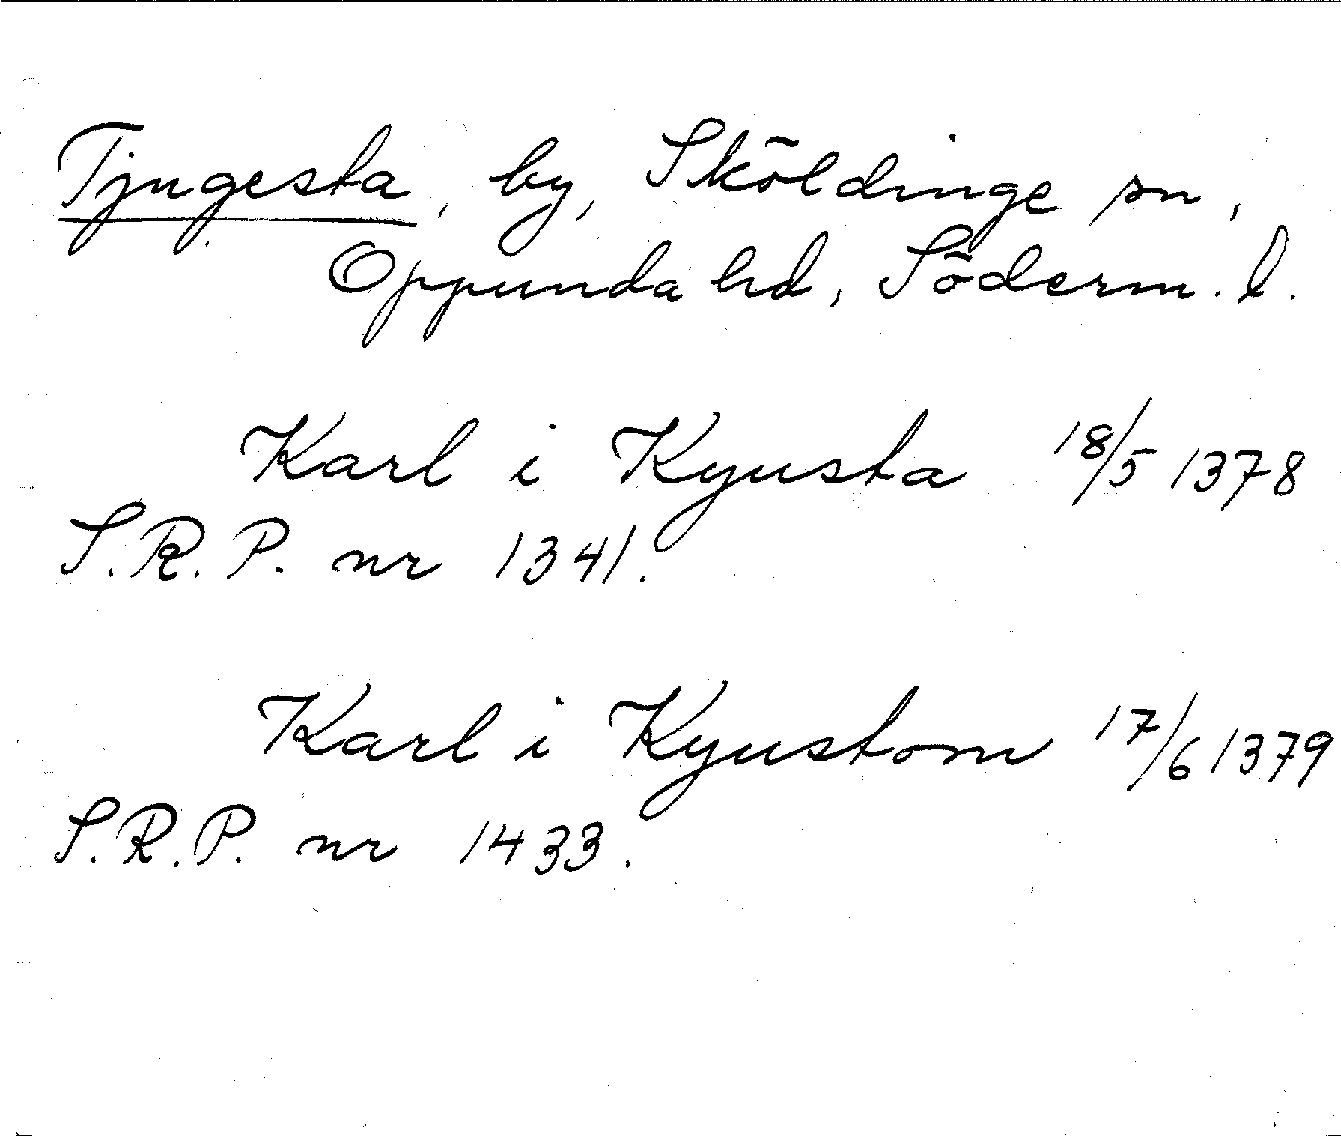 Tjugesta, by, Sköldinge sn,
Oppunda hd, Söderm. l.
Karl i Kyusta 18/5 1378
S.R.P. nr 1341.
Karl i Kyustom 17/6 1379
S.R.P. nr 1433.